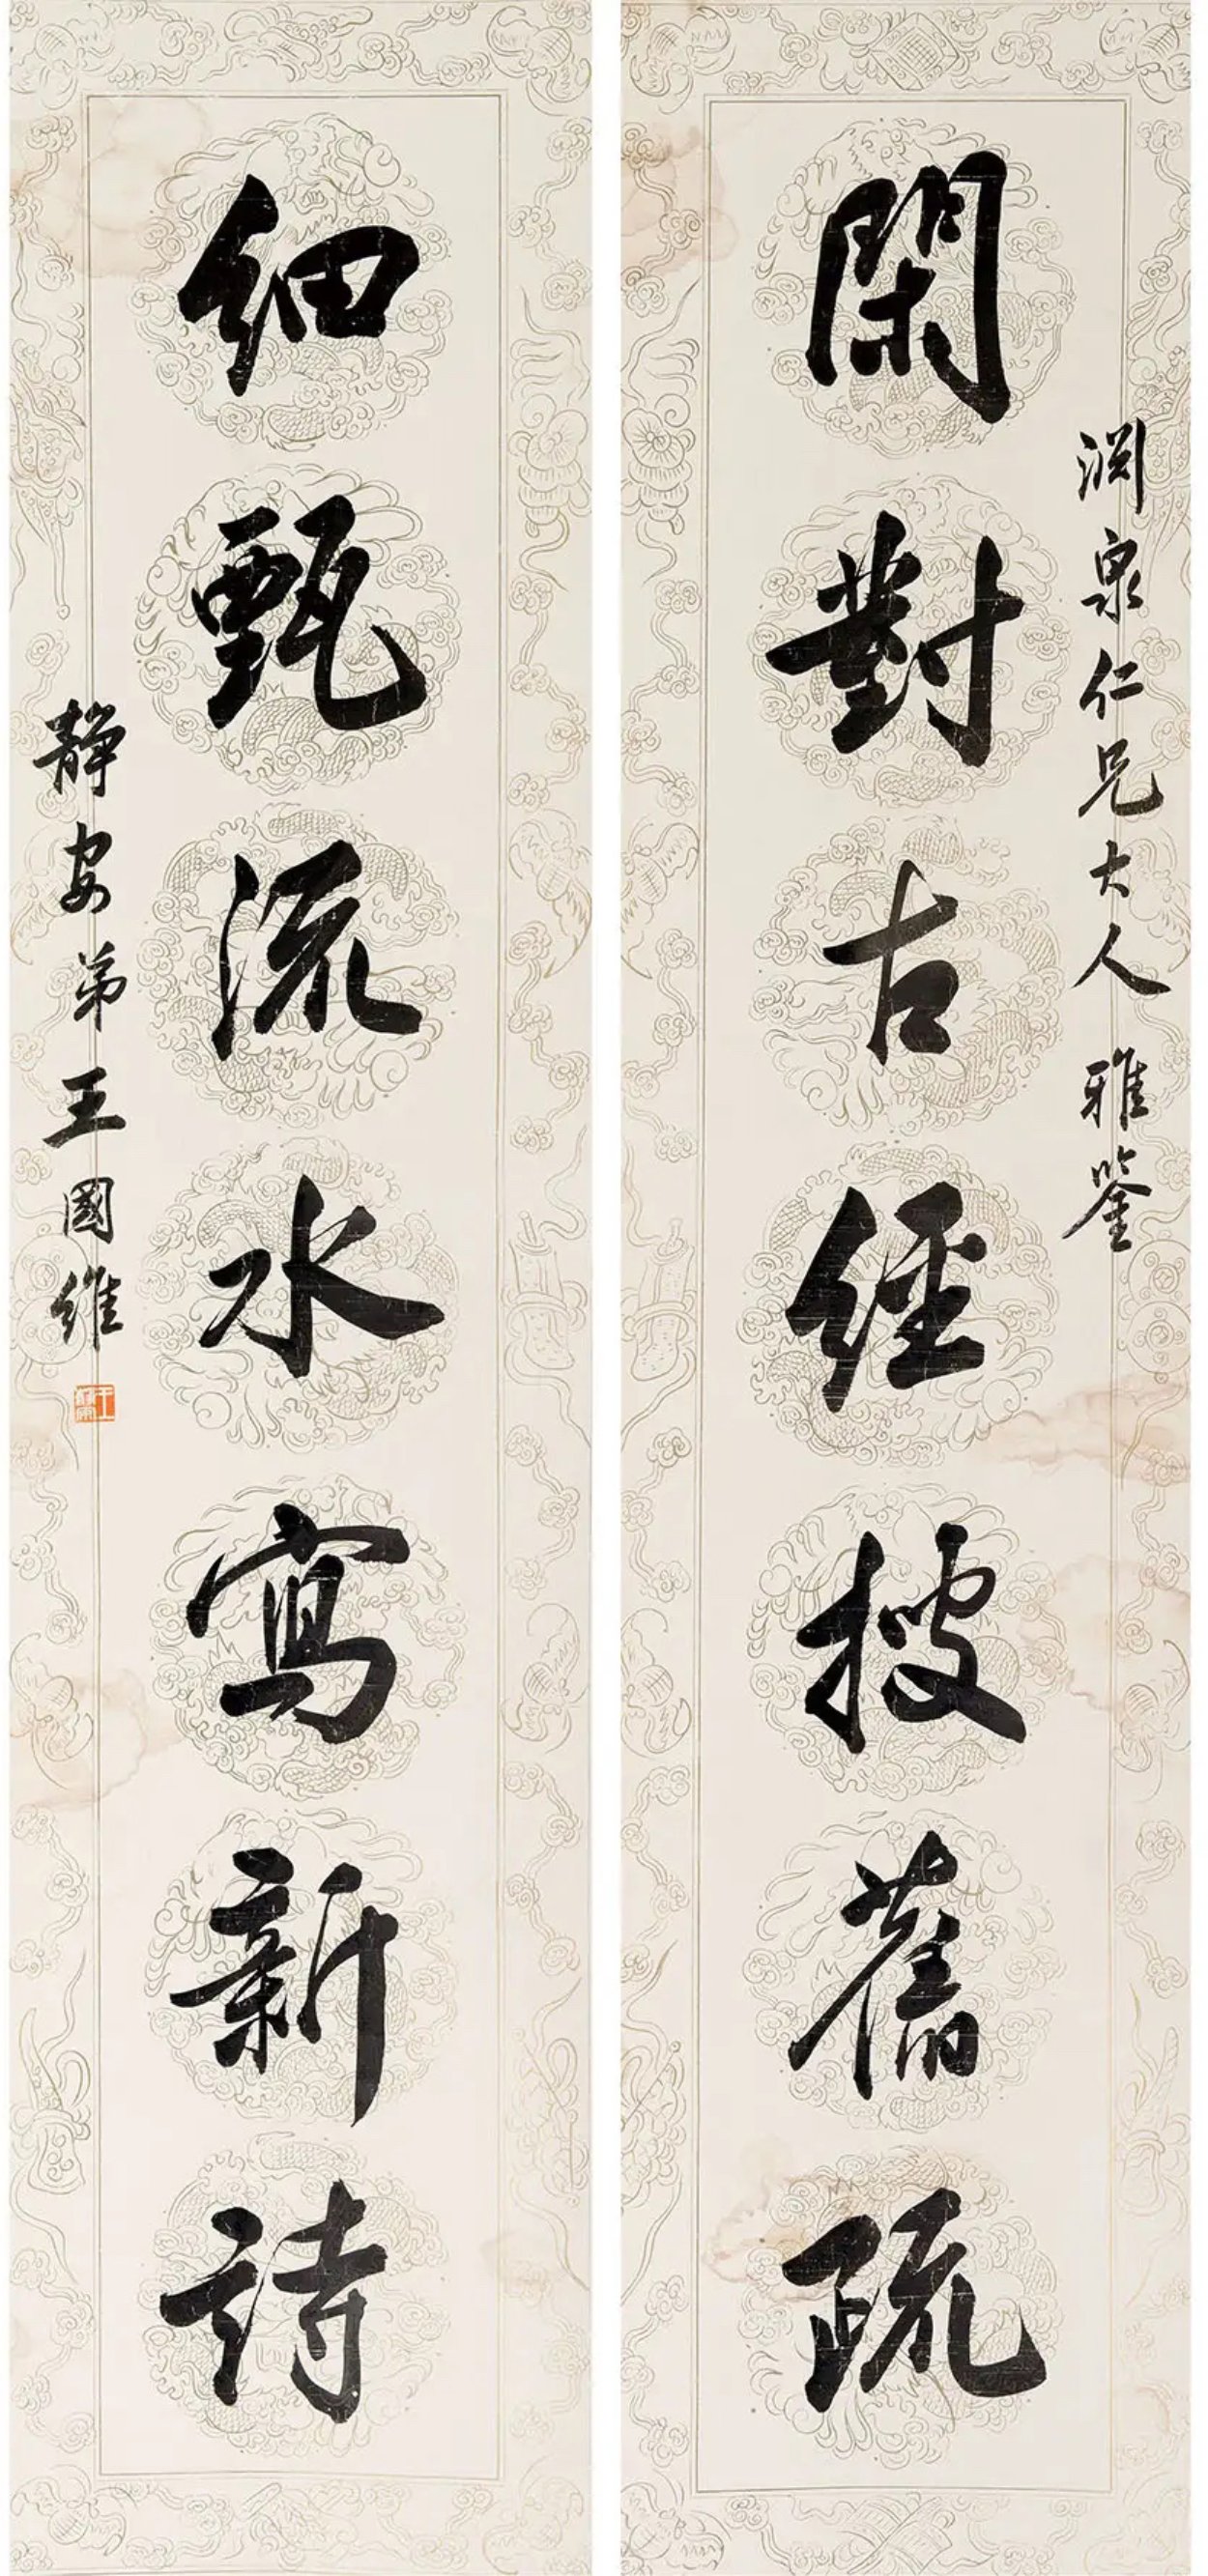 渊泉仁兄大人雅鉴
閑對古經搜舊疏
細甄流水寫新詩
靜安弟王國維